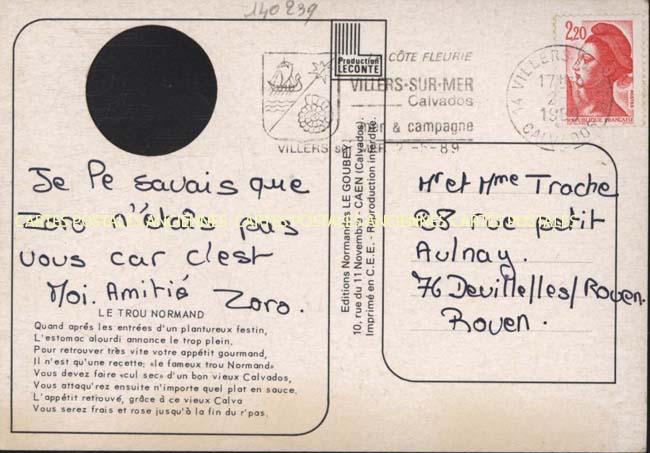 140239
Production
LECONTE
CÔTE FLEURIE
VILLERS-SUR-MER
Calvados
& campagne
VILLERS
14 VILLERS
CALVADOS
2,20
POSTES
REPUBLIQUE FRANÇAISE
Je Pe savais que
Zoro n'étais pas
vous car c'est
Moi. Amitié Zoro.
CARTES POSTALES ANCIENNES - CARTES POSTALES ANCIENNES - CARTES POSTALES
LE TROU NORMAND
Quand aprés les entrées d'un plantureux festin,
L'estomac alourdi annonce le trop plein,
Pour retrouver très vite votre appétit gourmand,
Il n'est qu'une recette; «le fameux trou Normand»
Vous devez faire «cul sec» d'un bon vieux Calvados,
Vous attaqu'rez ensuite n'importe quel plat en sauce.
L'appétit retrouvé, grâce à ce vieux Calva
Vous serez frais et rose jusqu'à la fin du r'pas.
Editions Normandes LE GOUBEY
10, rue du 11 Novembre - CAEN (Calvados).
Imprimé en C.E.E. - Reproduction interdite.
Mr et Mme Trache
23 rue petit
Aulnay.
76 Devillelles/Rouen.
Rouen.